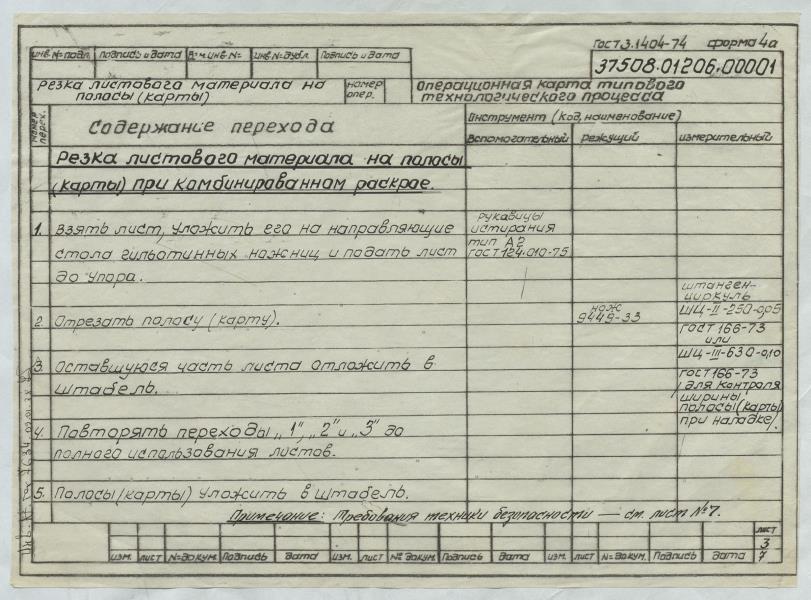 ГОСТ 3.1404-74 форма 4а
инв.№подл. Подпись и дата Вз.инв.№ инв.№дубл. Подпись и дата
37508.01206.00001
Резка листового материала на
полосы (карты)
номер
опер.
Операционная карта типового
технологического процесса
номер
перех.
Содержание перехода
Инструмент (код, наименование)
вспомогательный режущий измерительный
Резка листового материала на полосы
(карты) при комбинированном раскрое.
1. Взять лист, уложить его на направляющие
стола гильотинных ножниц и подать лист
до упора.
рукавицы
истирания
тип А2
ГОСТ 124.010-75
2. Отрезать полосу (карту).
нож
9449-33
штанген-
циркуль
ШЦ-II-250-0,05
ГОСТ 166-73
или
ШЦ-III-630-0,10
ГОСТ 166-73
/для контроля
ширины
полосы (карты)
при наладке/
3. Оставшуюся часть листа отложить в
штабель.
4. Повторять переходы „1", „2" и „3" до
полного использования листов.
5. Полосы (карты) уложить в штабель.
Примечание: Требования техники безопасности — см. лист №7.
лист
3
7
изм. лист №докум. Подпись дата изм. лист №докум. Подпись дата изм. лист №докум. Подпись дата